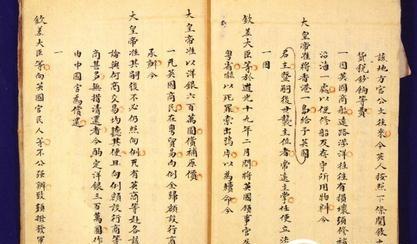 該地方官公文往來令英人按照下條開敘之
貨稅鈔餉等費
一因英國商船遠路涉洋往往有損壞須修補
沿海一處以便修船及存守所用物料今
大皇帝准將香港一島給予英國
君主暨嗣後世襲主位者常遠主掌任便立法
一因
欽差大臣等於道光十九年二月間將英國領事官
粵省嚇以死罪索出鴉片以為贖命今
大皇帝准以洋銀六百萬圓償補原價
一凡英國商民在粵貿易向例全歸額設行商
承辦今
大皇帝准其嗣後不必仍照向例凡有英商等赴各該
論與何商交易均聽其便且向例額設行商等
商甚多無措清還者今酌定洋銀三百萬圓作
由中國官為償還
一
欽差大臣等向英國官民人等不公強辦致須撥發軍